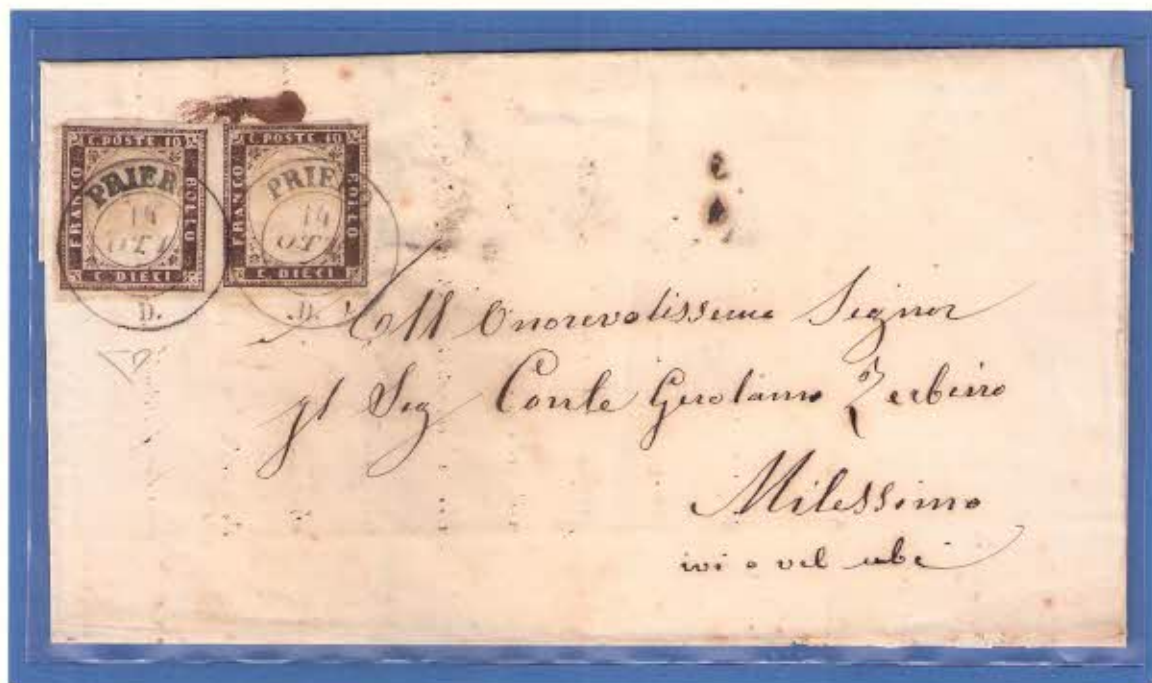 C. POSTE 10
FRANCO
BOLLO
C. DIECI
C. POSTE 10
FRANCO
BOLLO
C. DIECI
PRIER
14
OT
D.
PRIE
14
OT
D.
All Onorevolissimo Signor
Sig Conte Gerolamo Zerbino
Milessimo
ivi o vel ubi